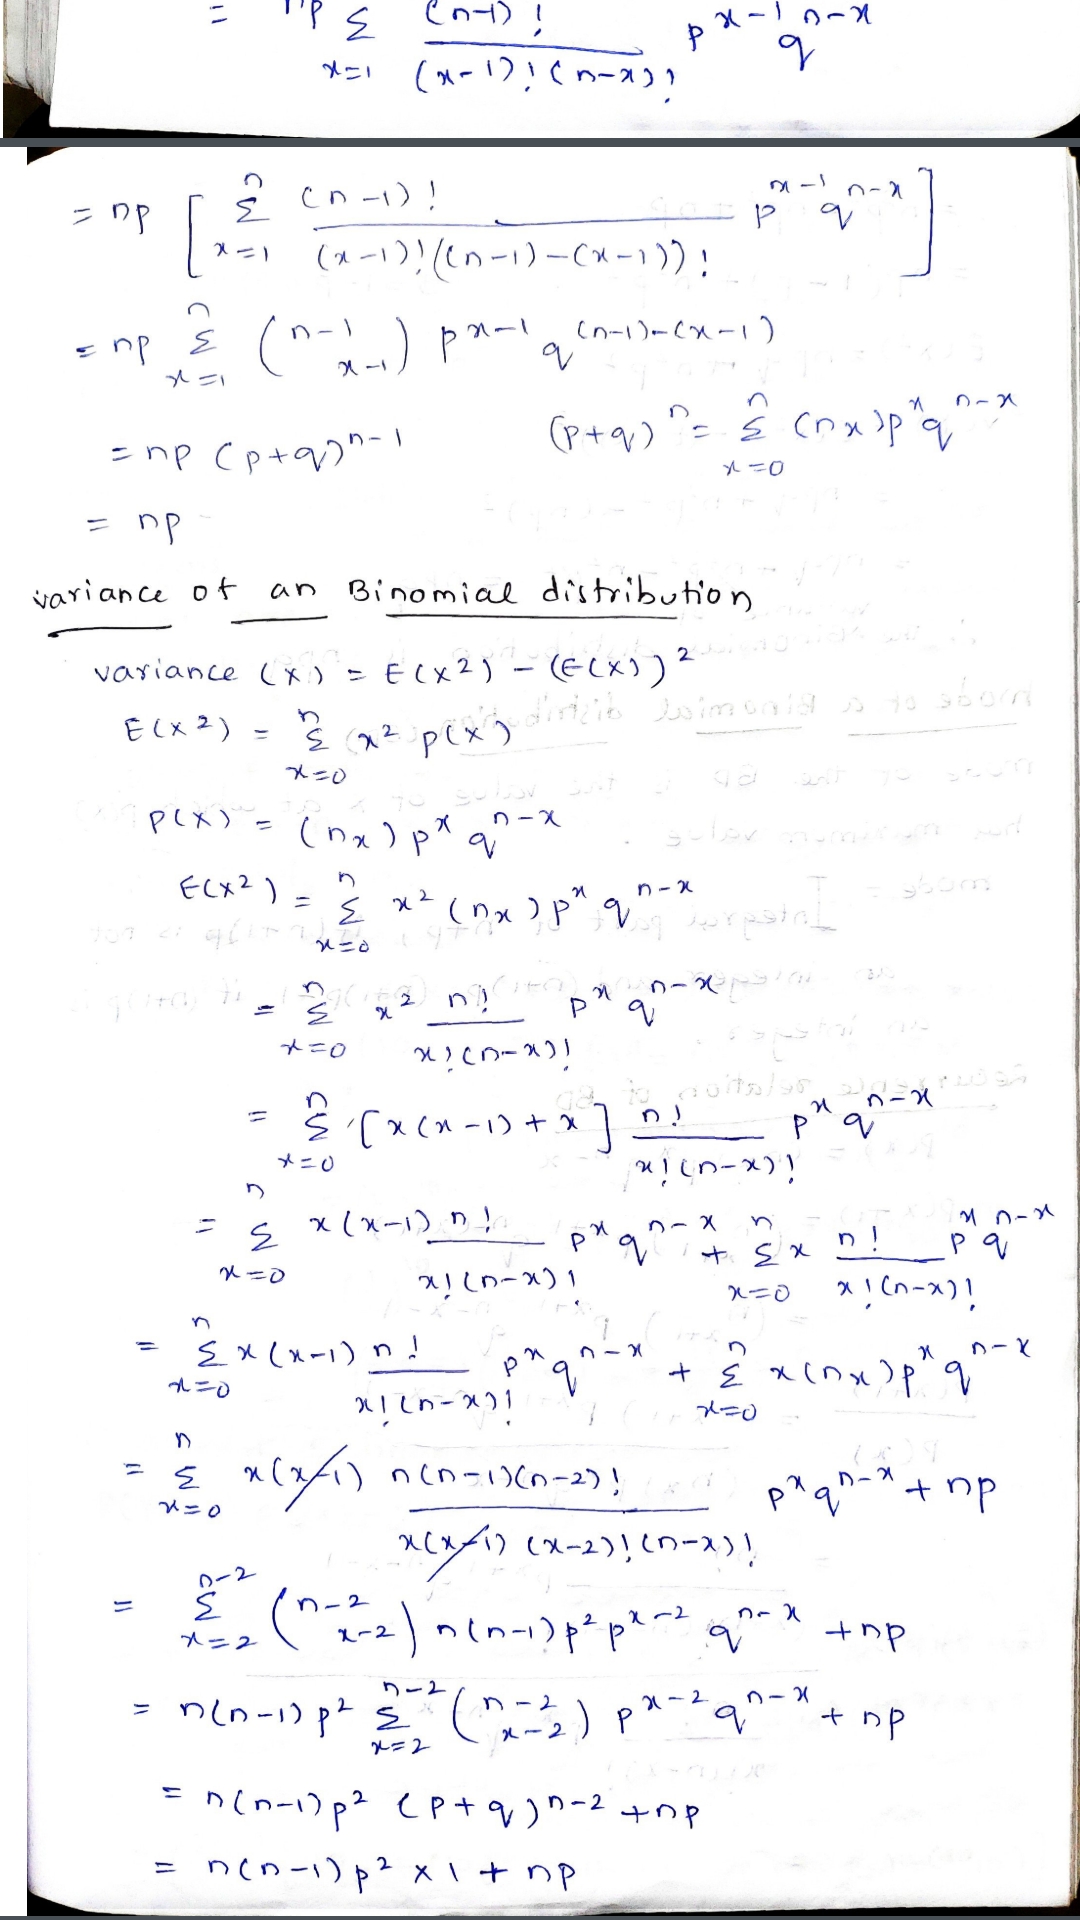 = np Σ (n-1)! / (x-1)!(n-x)! p^x-1 q^n-x
x=1
= np [ n Σ x=1 (n-1)! / (x-1)!((n-1)-(x-1))! p^x-1 q^n-x ]
= np n Σ x=1 (n-1 x-1) p^x-1 q^(n-1)-(x-1)
= np (p+q)^n-1 (p+q)^n = n Σ x=0 (nx) p^x q^n-x
= np
variance of an Binomial distribution
variance (x) = E(x²) - (E(x))²
E(x²) = n Σ x=0 x² p(x)
P(x) = (nx) p^x q^n-x
E(x²) = n Σ x=0 x² (nx) p^x q^n-x
= n Σ x=0 x² n! / x!(n-x)! p^x q^n-x
= n Σ x=0 [x(x-1)+x] n! / x!(n-x)! p^x q^n-x
= n Σ x=0 x(x-1) n! / x!(n-x)! p^x q^n-x + n Σ x=0 x n! / x!(n-x)! p^x q^n-x
= n Σ x=0 x(x-1) n! / x!(n-x)! p^x q^n-x + n Σ x=0 x(nx) p^x q^n-x
= n Σ x=0 x(x-1) n(n-1)(n-2)! / x(x-1)(x-2)!(n-x)! p^x q^n-x + np
= n-2 Σ x=2 (n-2 x-2) n(n-1)p² p^x-2 q^n-x + np
= n(n-1)p² n-2 Σ x=2 (n-2 x-2) p^x-2 q^n-x + np
= n(n-1)p² (p+q)^n-2 + np
= n(n-1)p² × 1 + np